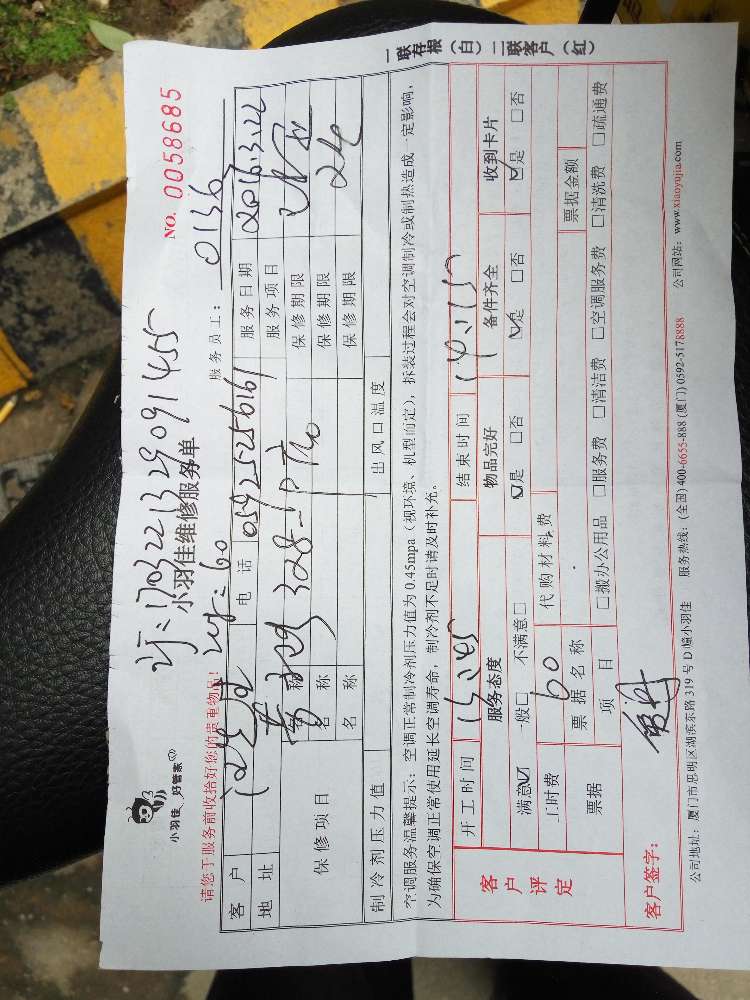 一联存根（白）二联客户（红）
NO. 0058685
小羽佳 好管家
1703221329091455
小羽佳维修服务单
60
请您于服务前收拾好您的贵重物品！
服务员工：0136
客户
电话 05925256161
服务日期
地址
328
服务项目
保修项目
名称
保修期限
名称
保修期限
名称
保修期限
制冷剂压力值
出风口温度
空调服务温馨提示：空调正常制冷剂压力值为0.45mpa（视环境、机型而定），拆装过程会对空调制冷或制热造成一定影响，
为确保空调正常使用延长空调寿命，制冷剂不足时请及时补充。
客户评定
开工时间
结束时间
服务态度 物品完好 备件齐全 收到卡片
满意☑ 一般□ 不满意□ ☑是 □否 ☑是 □否 ☑是 □否
工时费 60 代购材料费
票据 票据名称 票据金额
项目 □搬办公用品 □服务费 □清洁费 □空调服务费 □清洗费 □疏通费
客户签字：
公司地址：厦门市思明区湖滨东路319号D幢小羽佳 服务热线：(全国) 400-6655-888 (厦门) 0592-5178888 公司网站：www.xiaoyujia.com